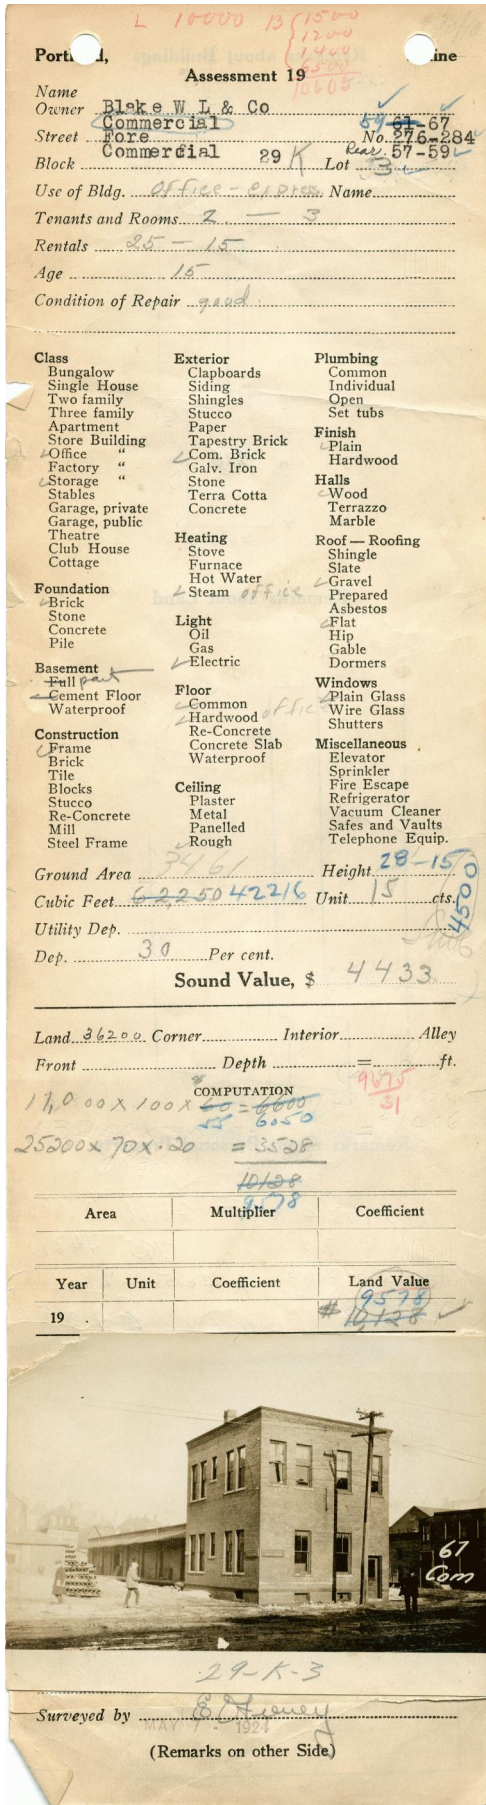 L 10000 B 1500
1200
1400
6500
10605
Portland, Maine
Assessment 19
Name
Owner Blake W L & Co
Commercial 59 61-67
Street Fore No. 276-284
Commercial Rear. 57-59
Block 29 K Lot 3
Use of Bldg. Office - express Name
Tenants and Rooms 2 — 3
Rentals 25 — 15
Age 15
Condition of Repair good
Class
Bungalow
Single House
Two family
Three family
Apartment
Store Building
Office "
Factory "
Storage "
Stables
Garage, private
Garage, public
Theatre
Club House
Cottage
Foundation
Brick
Stone
Concrete
Pile
Basement
Full part
Cement Floor
Waterproof
Construction
Frame
Brick
Tile
Blocks
Stucco
Re-Concrete
Mill
Steel Frame
Exterior
Clapboards
Siding
Shingles
Stucco
Paper
Tapestry Brick
Com. Brick
Galv. Iron
Stone
Terra Cotta
Concrete
Heating
Stove
Furnace
Hot Water
Steam office
Light
Oil
Gas
Electric
Floor
Common
Hardwood office
Re-Concrete
Concrete Slab
Waterproof
Ceiling
Plaster
Metal
Panelled
Rough
Plumbing
Common
Individual
Open
Set tubs
Finish
Plain
Hardwood
Halls
Wood
Terrazzo
Marble
Roof — Roofing
Shingle
Slate
Gravel
Prepared
Asbestos
Flat
Hip
Gable
Dormers
Windows
Plain Glass
Wire Glass
Shutters
Miscellaneous
Elevator
Sprinkler
Fire Escape
Refrigerator
Vacuum Cleaner
Safes and Vaults
Telephone Equip.
Ground Area 3461 Height 28-15
Cubic Feet 62250 42216 Unit 15 cts.
4500
Utility Dep.
Dep. 30 Per cent.
Sound Value, $ 4433
Land 36200 Corner Interior Alley
Front Depth = ft.
COMPUTATION
9675
31
11,000 x 100 x 60 = 6600
55 6050
25200 x 70 x .20 = 3528
10128
9578
Area Multiplier Coefficient
Year Unit Coefficient Land Value
9578
19 $ 10,128
67
Com
29-K-3
Surveyed by
MAY 1924
(Remarks on other Side)